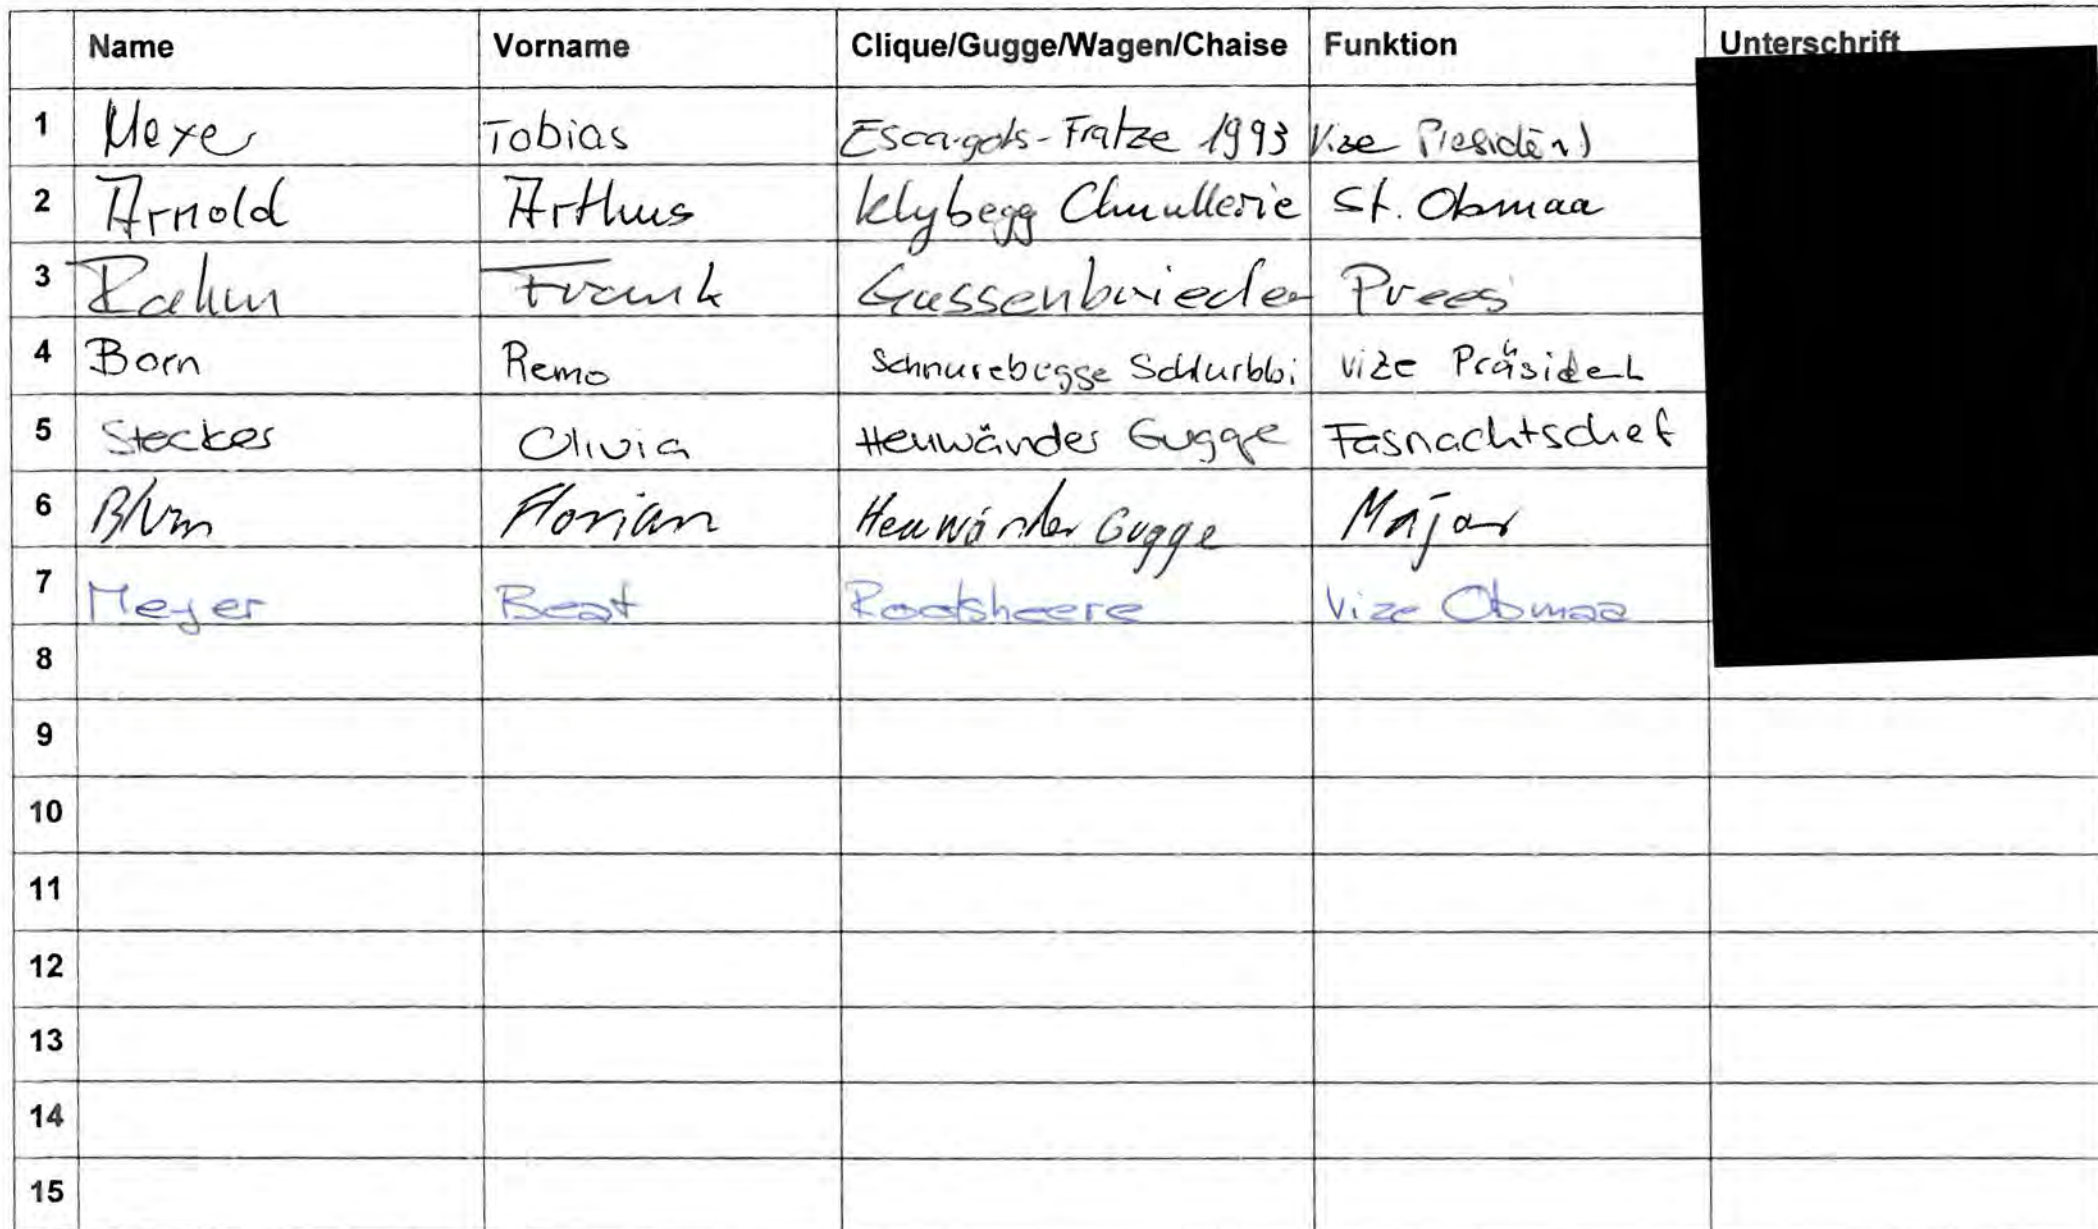 Name Vorname Clique/Gugge/Wagen/Chaise Funktion Unterschrift
1 Meyer Tobias Escargots-Fratze 1993 Vize President
2 Arnold Arthus Klybegg Chnullerie St. Obmaa
3 Rahm Frank Gassenbrieder Prees
4 Born Remo Schnurebegge Schlurbbi vize Präsident
5 Stecker Olivia Heuwänder Gugge Fasnachtschef
6 Blum Florian Heuwänder Gugge Major
7 Meyer Beat Rootsheere Vize Obmaa
8
9
10
11
12
13
14
15